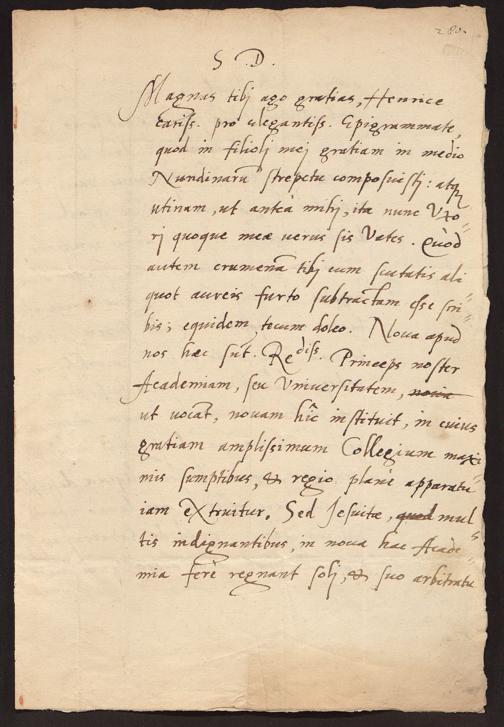 280.
S. D.
Magnas tibj ago gratias, Henrice
cariss. pro elegantiss. Epigrammate,
quod in filiolj mej gratiam in medio
Nundinarū strepitu composuistj: atq₃
utinam, ut anteà mihj, ita nunc Uxo=
rj quoque meæ uerus sis Vates. Quòd
autem crumenā tibj cum scutatis ali=
quot aureis furto subtractam esse scri=
bis; equidem tecum doleo. Noua apud
nos hæc sūt. Rediss. Princeps noster
Academiam, seu Vniuersitatem,
ut vocāt, nouam hîc instituit, in cuius
gratiam amplissimum Collegium maxi=
mis sumptibus, & regio planè apparatu
iam extruitur. Sed Jesuitæ, quod mul=
tis indignantibus, in noua hac Acade=
mia ferè regnant solj, & suo arbitratu